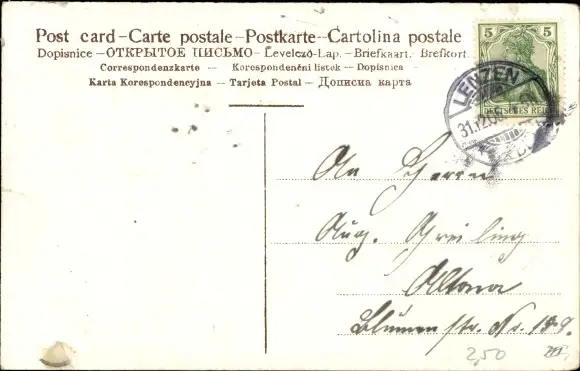 Post card - Carte postale - Postkarte - Cartolina postale
Dopisnice - ОТКРЫТОЕ ПИСЬМО - Levelező-Lap. - Briefkaart. Brefkort.
Correspondenzkarte - Korespondenční listek - Dopisnica -
Karta Korespondencyjna - Tarjeta Postal - Дописна карта
5 5
DEUTSCHES REICH
LENZEN
31.12.05
An Herrn
Aug. Greiling
Altona
Blumenstr. No.
2,50